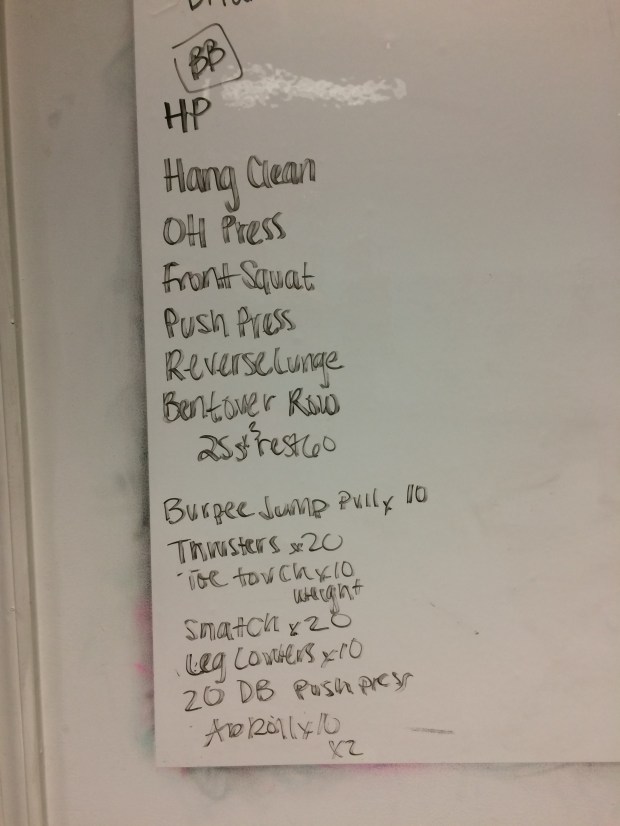 BB
HP
Hang Clean
OH Press
Front Squat
Push Press
Reverse Lunge
Bentover Row
rest 60
Burpee Jump Pull x 10
Thrusters x 20
Toe touch x 10
weight
Snatch x 20
Leg Lowers x 10
20 DB Push press
Ab Roll x 10
x2